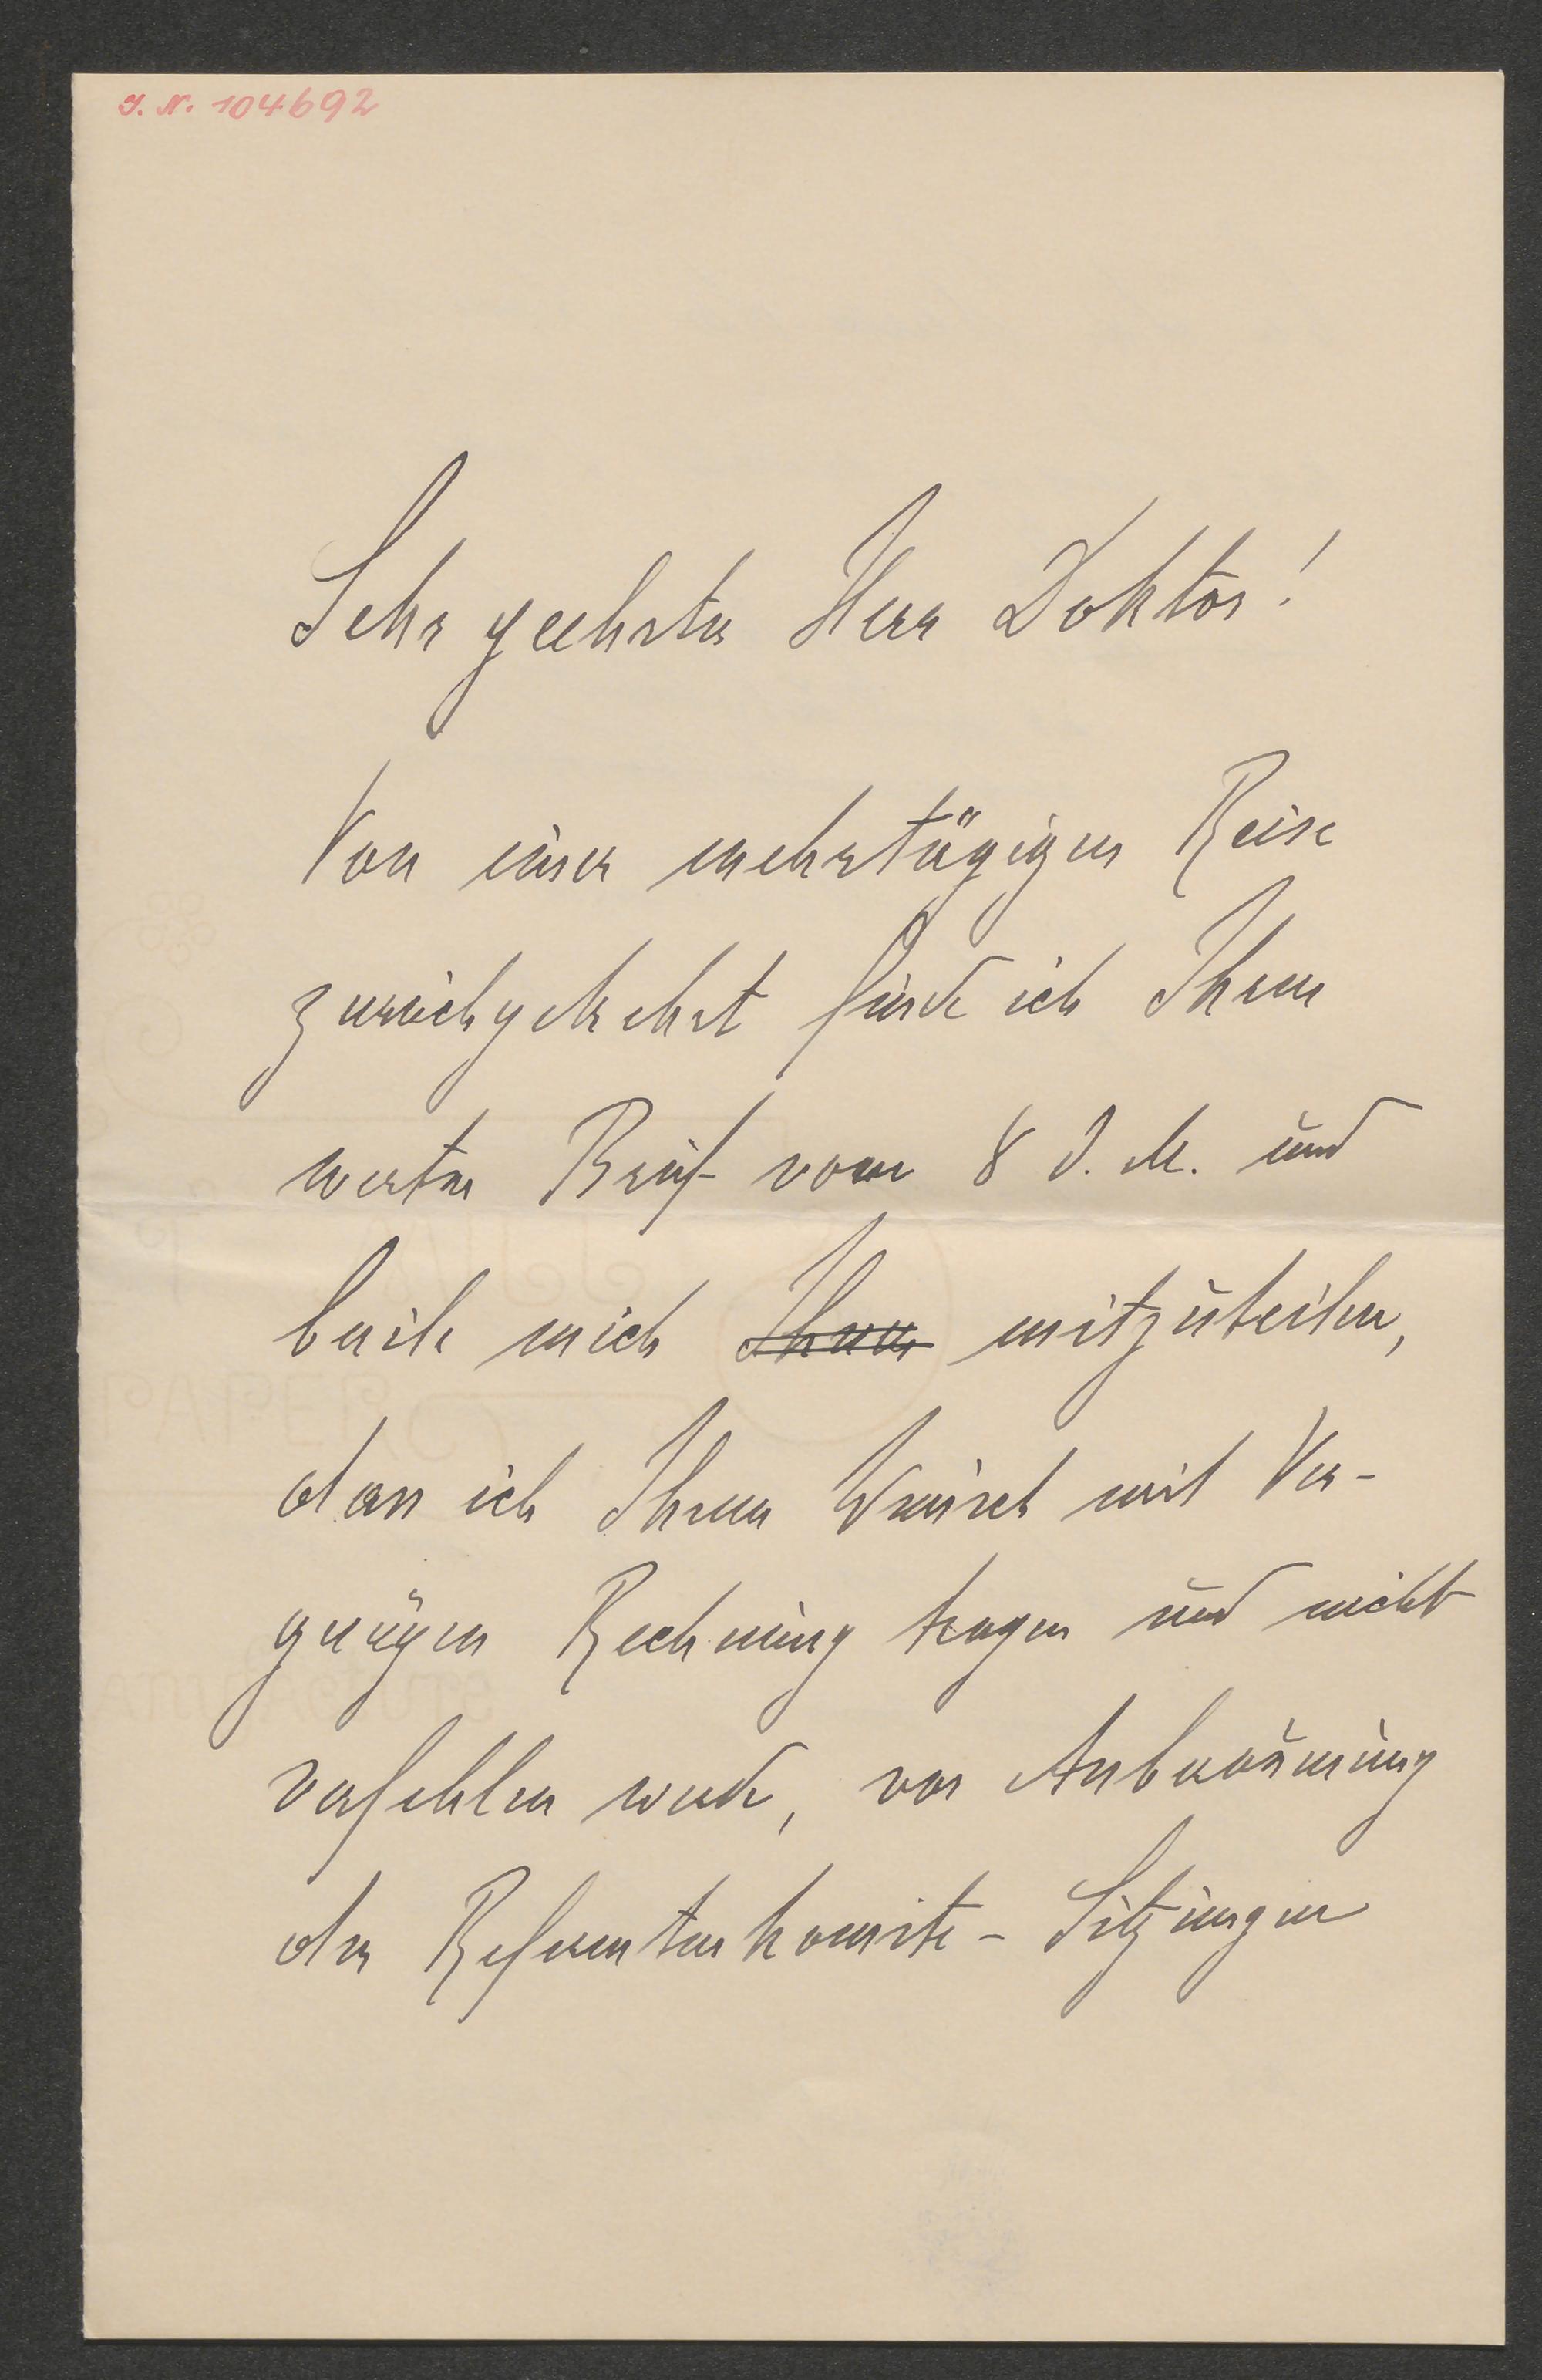 I. N. 104692
Sehr geehrter Herr Doktor!
Von einer mehrtägigen Reise
zurückgekehrt finde ich Ihren
werten Brief vom 8 d. M. und
beeile mich Ihnen mitzuteilen,
dass ich Ihrem Wunsch mit Ver-
gnügen Rechnung tragen und nicht
verfehlen werde, vor Anberaumung
der Referentenkomite-Sitzungen